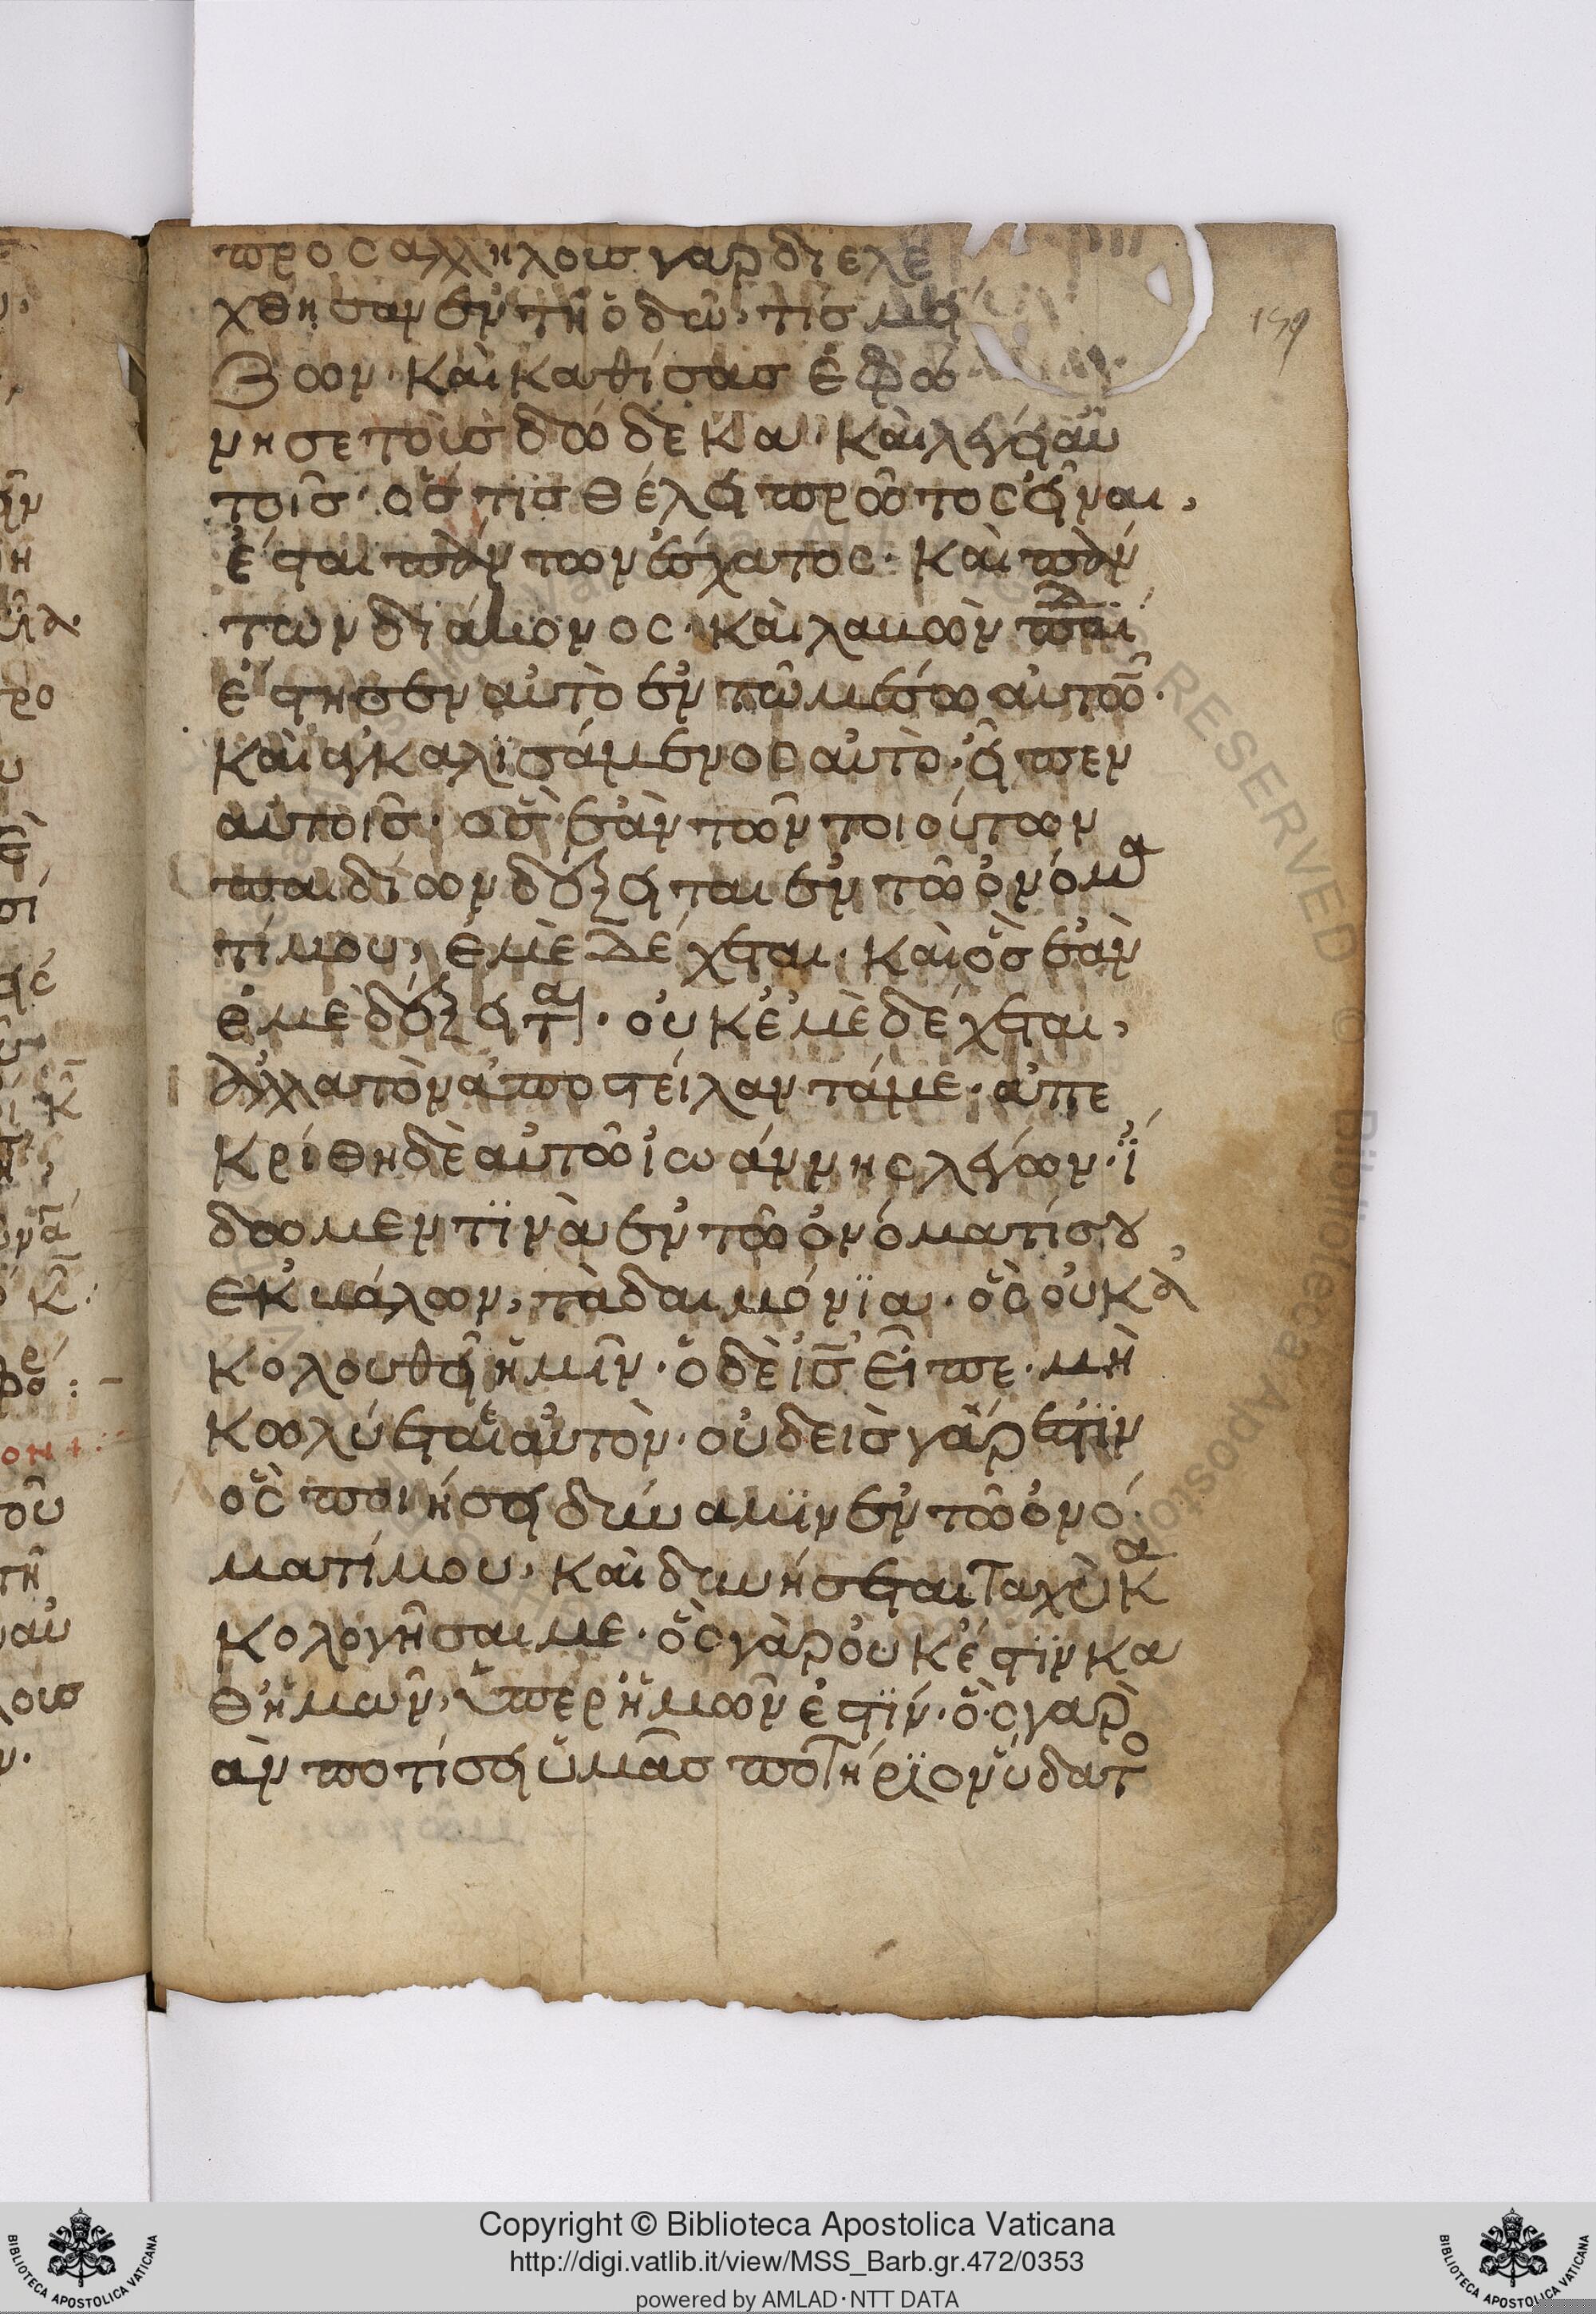 προς αλλήλοις γαρ διελέ
χθησαν ἐν τῆ ὁδῶ, τίς μεί
ζων. καὶ καθίσας ἐφώ
νησε τοὺς δώδεκα. καὶ λέγει αὐ
τοῖς. ὅστις θέλει πρῶτος εἶναι,
ἔσται πάντων ἔσχατος. καὶ πάν
των διάκονος. καὶ λαβὼν παιδί
ἔστησεν αὐτὸ ἐν τῶ μέσω αὐτῶν.
καὶ ἐγκαλισάμενος αὐτὸ. εἶπεν
αὐτοῖς. ὃς ἐὰν τῶν τοιούτων
παιδίων δέξηται ἐν τῶ ὀνόμα
τί μου, ἐμὲ δέχεται. καὶ ὃς ἐὰν
ἐμὲ δέξηται. οὐκ ἐμὲ δέχεται,
ἀλλὰ τὸν ἀποστείλαντά με. ἀπε
κρίθη δὲ αὐτῶ ἰωάννης λέγων. ἴ
δωμεν τϊνὰ ἐν τῶ ὀνόματί σου
ἐκβάλων, τὰ δαιμόνϊα. ὃς οὐκ ἀ
κολουθεῖ ἡμῖν. ὁ δὲ ις εἶπε. μὴ
κωλύεται αὐτὸν. οὐδεὶς γάρ ἐστϊν
ὃς ποιήσει δύναμϊν ἐν τῶ ὀνό
ματί μου, καὶ δυνήσεται ταχὺ κα
κολογῆσαι με. ὃς γὰρ οὐκ ἔστϊν κα
θ ἡμῶν, ὑπερ ἡμῶν ἐστϊν. ὃς γαρ
ἀν ποτίσει ὑμᾶς ποτήρϊον ὕδατο
Copyright © Biblioteca Apostolica Vaticana
http://digi.vatlib.it/view/MSS_Barb.gr.472/0353
powered by AMLAD·NTT DATA
BIBLIOTECA APOSTOLICA VATICANA
BIBLIOTECA APOSTOLICA VATICANA